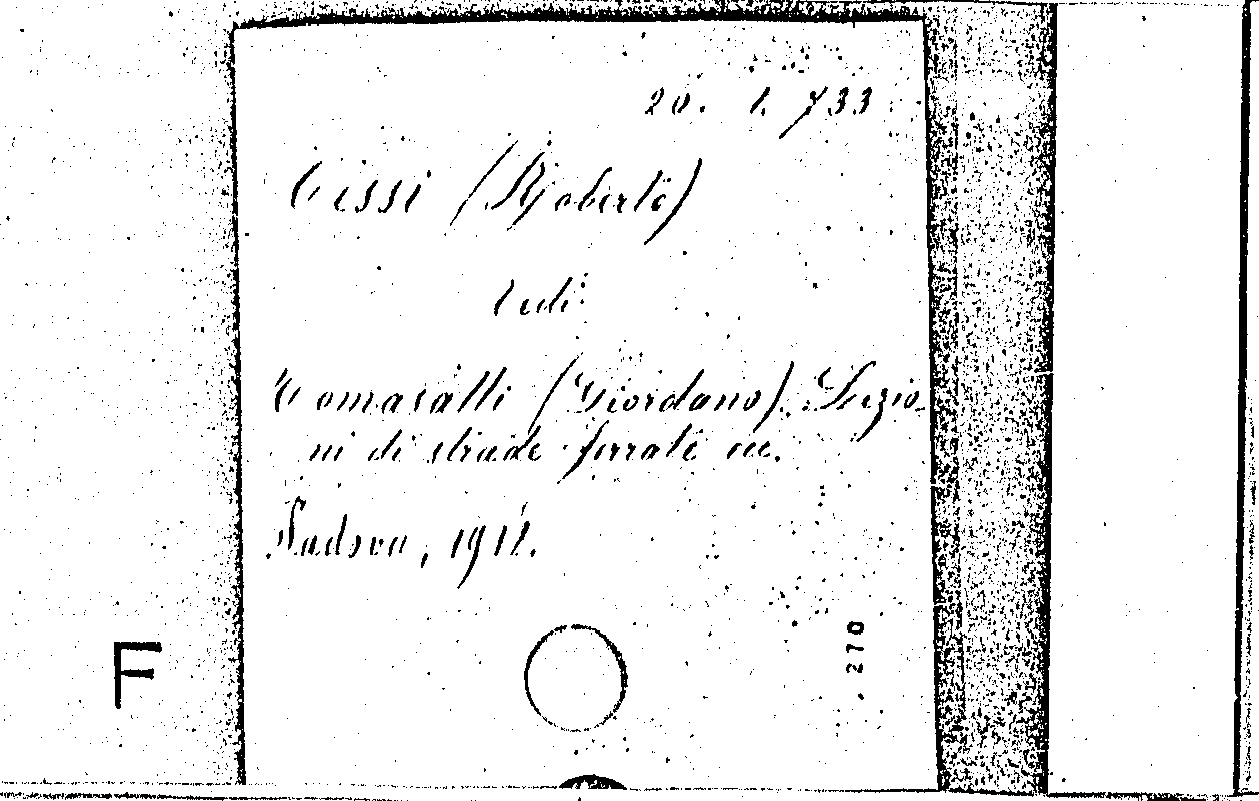 20. 1. 733
Tissi (Roberto)
Vedi
Tomasatti (Giordano). Lezio-
ni di strade ferrate ecc.
Padova, 1912.
270
F